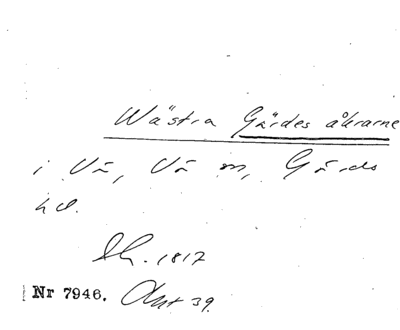 Wästra Gärdes åkrarne
i Vä, Vä sn, Gärds
hd.
Lh. 1817
Nr 7946. Akt 39.